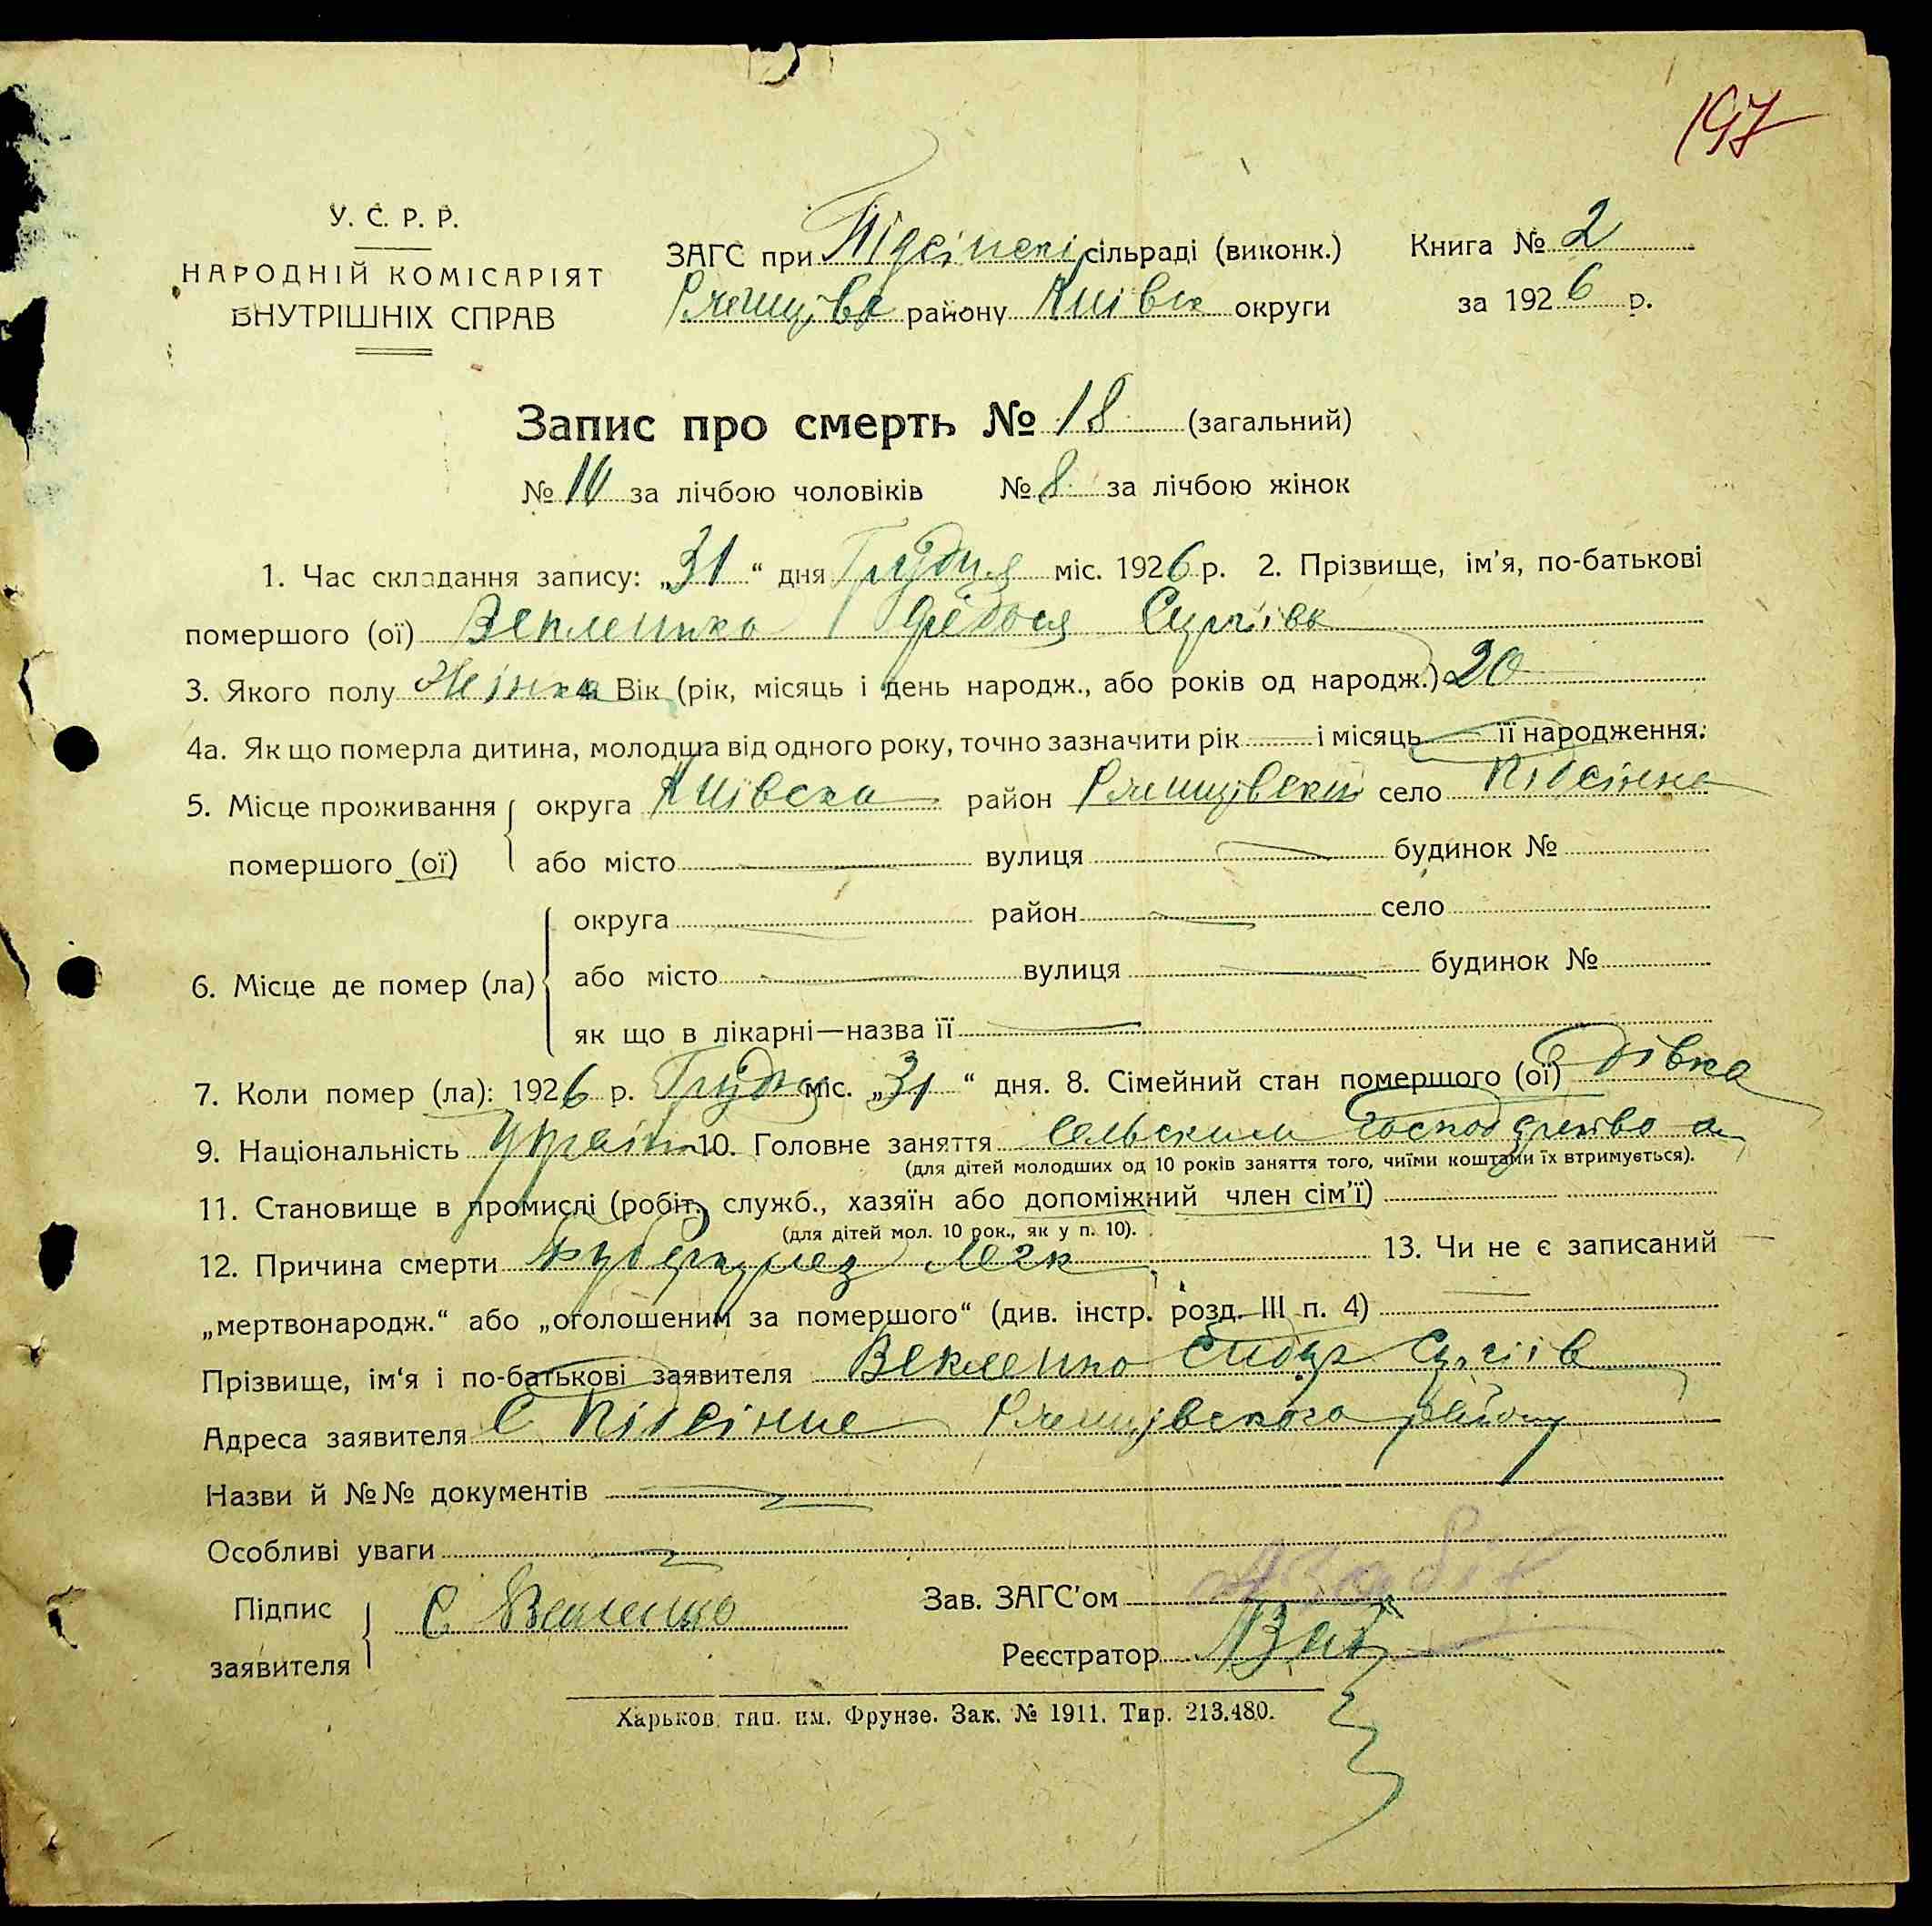 197
У. С. Р. Р.
НАРОДНІЙ КОМІСАРІЯТ
ВНУТРІШНІХ СПРАВ
ЗАГС при Підсінскі сільраді (виконк.) Книга № 2
Ржищівс району Київск округи за 1926 р.
Запис про смерть № 18 (загальний)
№ 10 за лічбою чоловіків № 8 за лічбою жінок
1. Час складання запису: „31“ дня Грудня міс. 1926 р. 2. Прізвище, ім’я, по-батькові
помершого (ої) Векленко Федося Сергієв
3. Якого полу Жінка 4. Вік (рік, місяць і день народж., або років од народж.) 20
4а. Як що померла дитина, молодша від одного року, точно зазначити рік і місяць її народження.
5. Місце проживання округа Київска район Ржищівский село Підсінне
помершого (ої) або місто вулиця будинок №
округа район село
6. Місце де помер (ла) або місто вулиця будинок №
як що в лікарні—назва її
7. Коли помер (ла): 1926 р. Грудня міс. „31“ дня. 8. Сімейний стан помершого (ої) Дівка
9. Національність Україн 10. Головне заняття сельским господарство
(для дітей молодших од 10 років заняття того, чиїми коштами їх втримується).
11. Становище в промислі (робіт., служб., хазяїн або допоміжний член сім’ї)
(для дітей мол. 10 рок., як у п. 10).
12. Причина смерти туберкулез легк 13. Чи не є записаний
„мертвонародж.“ або „оголошеним за помершого“ (див. інстр. розд. III п. 4)
Прізвище, ім‘я і по-батькові заявителя Векленко Сидір Сергіїв
Адреса заявителя С Підсінне Ржищівского району
Назви й №№ документів
Особливі уваги
Підпис С Векленко Зав. ЗАГС’ом
заявителя Реєстратор
Харьков, тип. им. Фрунзе. Зак. № 1911. Тир. 213.480.